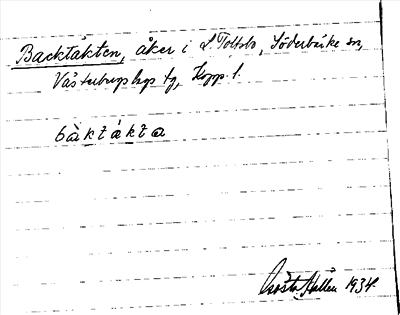 Backtäkten, åker i L. Tolsbo, Söderbärke sn,
Västerbergslags fg, Kopp. l.
bàktákta
Gösta Hallén 1934